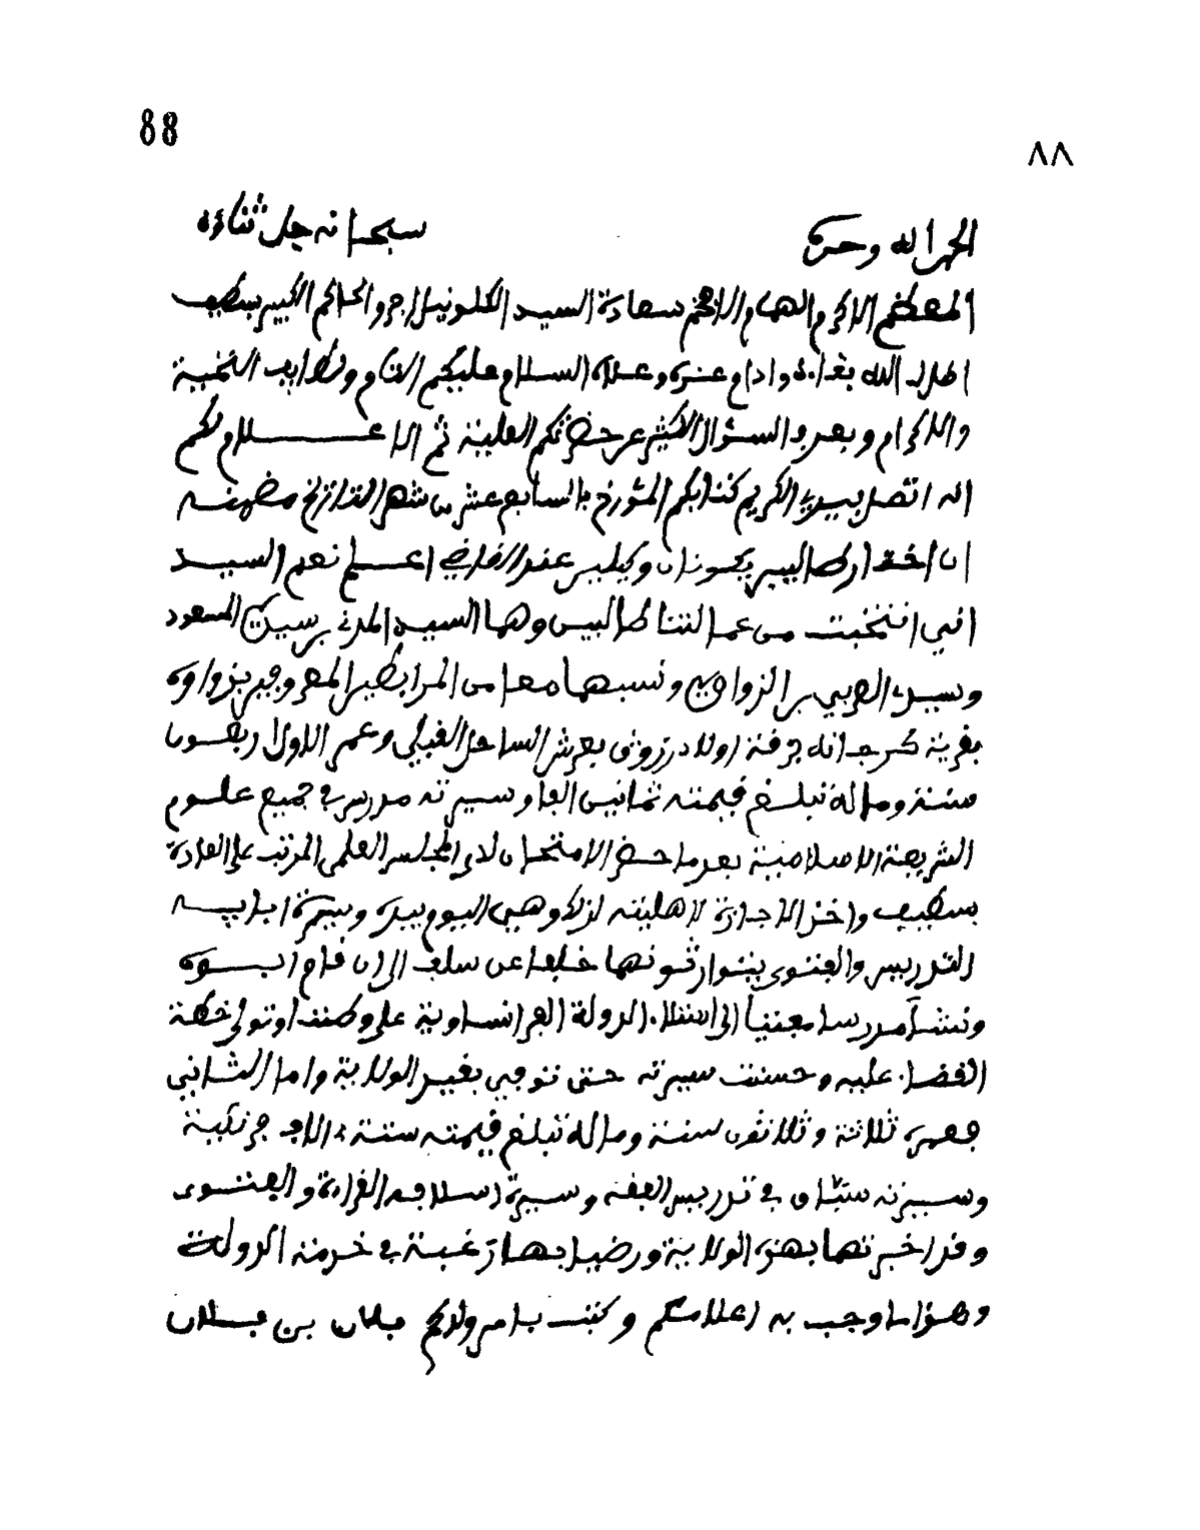 88
٨٨
الحمد لله وحده سبحانه جل ثناؤه
المعظم الاكرم والهمام الافخم سعادة السيد الكلونيل الاجر والحاكم الكبير بسطيف
اطال الله بقاءه وادام عزه وعلاه السلام عليكم التام ولطايف التحية
والاكرام وبعد السؤال الكثير عن حضرتكم العلية ثم الاعلام لكم
انه اتصل بيدي الكريم كتابكم المؤرخ بالسابع عشر من شهر التاريخ مضمنه
ان اختار طالبين يكونان وكيلين عند القاضي اعلم نعم السيد
انني انتخبت من عمالتنا طالبين وهما السيد المدني بن سيدي المسعود
وسيدي العربي بن الزواوي ونسبهما معا من المرابطين المعروفين بزواوة
بقرية كرجانة فرقة اولاد رزوق بعرش الساحل القبلي وعمر الاول اربعون
سنة وماله تبلغ قيمته ثمانين الفا وسيرته مدرس في جميع علوم
الشريعة الاسلامية بعدما حضر الامتحان لدى المجلس العلمي المرتب على العادة
بسطيف واخذ الاجازة لاهليته لذلك وهي اليوم بيده وسيرة ابايه
التدريس والفتوى يتوارثونها خلفا عن سلف الى ان قام ابوه
ونشأ مدرسا مفتيا الى استيلاء الدولة الفرانساوية على وطننا وتولى خطة
القضاء عليه وحسنت سيرته حتى توفي بقيد الولاية واما الثاني
فعمره ثلاثة وثلاثون سنة وماله تبلغ قيمته ستة ءالاف فرنكية
وسيرته ستاق في تدريس الفقه وسيرة اسلافه القراءة والفتوى
وقد اخبرتهما بهذه الولاية ورضيا بها رغبة في خدمة الدولة
وهذا ما وجب به اعلامكم وكتب بامر ولدكم فلان بن فلان